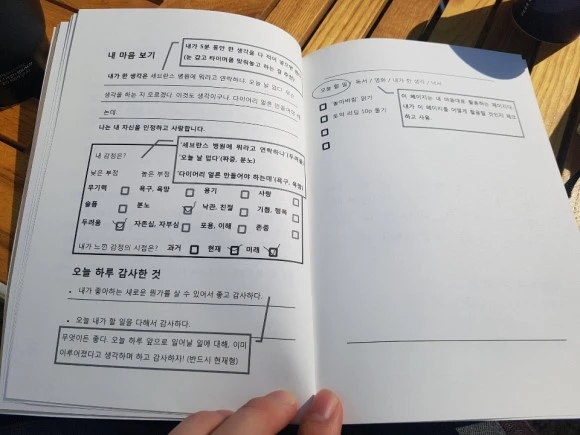 내 마음 보기
내가 5분 동안 한 생각을 다
(눈 감고 타이머를 맞춰놓고 하는 걸
내가 한 생각은 세브란스 병원에 뭐라고 연락하나. 오늘 날 없다.
생각을 하는 지 모르겠다. 이것도 생각이구나. 다이어리 얼른 만들어야 하
는데
나는 내 자신을 인정하고 사랑합니다.
'세브란스 병원에 뭐라고 연락하나'(두려움)
'오늘 날 없다'(짜증, 분노)
'다이어리 얼른 만들어야 하는데'(욕구, 욕망)
내 감정은?
낮은 부정 높은 부정
무기력 욕구, 욕망 용기 사랑
슬픔 분노 낙관, 친절 기쁨, 행복
두려움 자존심, 자부심 포용, 이해 존중
내가 느낀 감정의 시점은? 과거 현재 미래
오늘 하루 감사한 것
• 내가 좋아하는 새로운 뭔가를 살 수 있어서 좋고 감사하다.
• 오늘 내가 할 일을 다해서 감사하다.
무엇이든 좋다. 오늘 하루 앞으로 일어날 일에 대해, 이미
이루어졌다고 생각하며 하고 감사하자! (반드시 현재형)
오늘 할 일 독서 / 영화 / 내가 한 생각 /
읽기
토익 리딩 10p 풀기
이 페이지는 내 마음대로 활용하는 페이지다.
내가 이 페이지를 어떻게 활용할 것인지 체크
하고 사용.